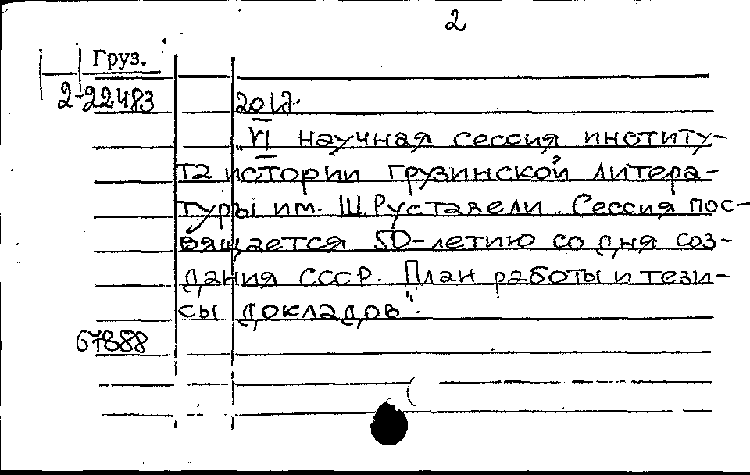 2
Груз.
2-22483
„VI научная сессия институ-
та истории грузинской литера-
туры им. Ш.Руставели. Сессия пос-
вящается 50-летию со дня соз-
дания СССР. План работы и тези-
сы докладов".
67888